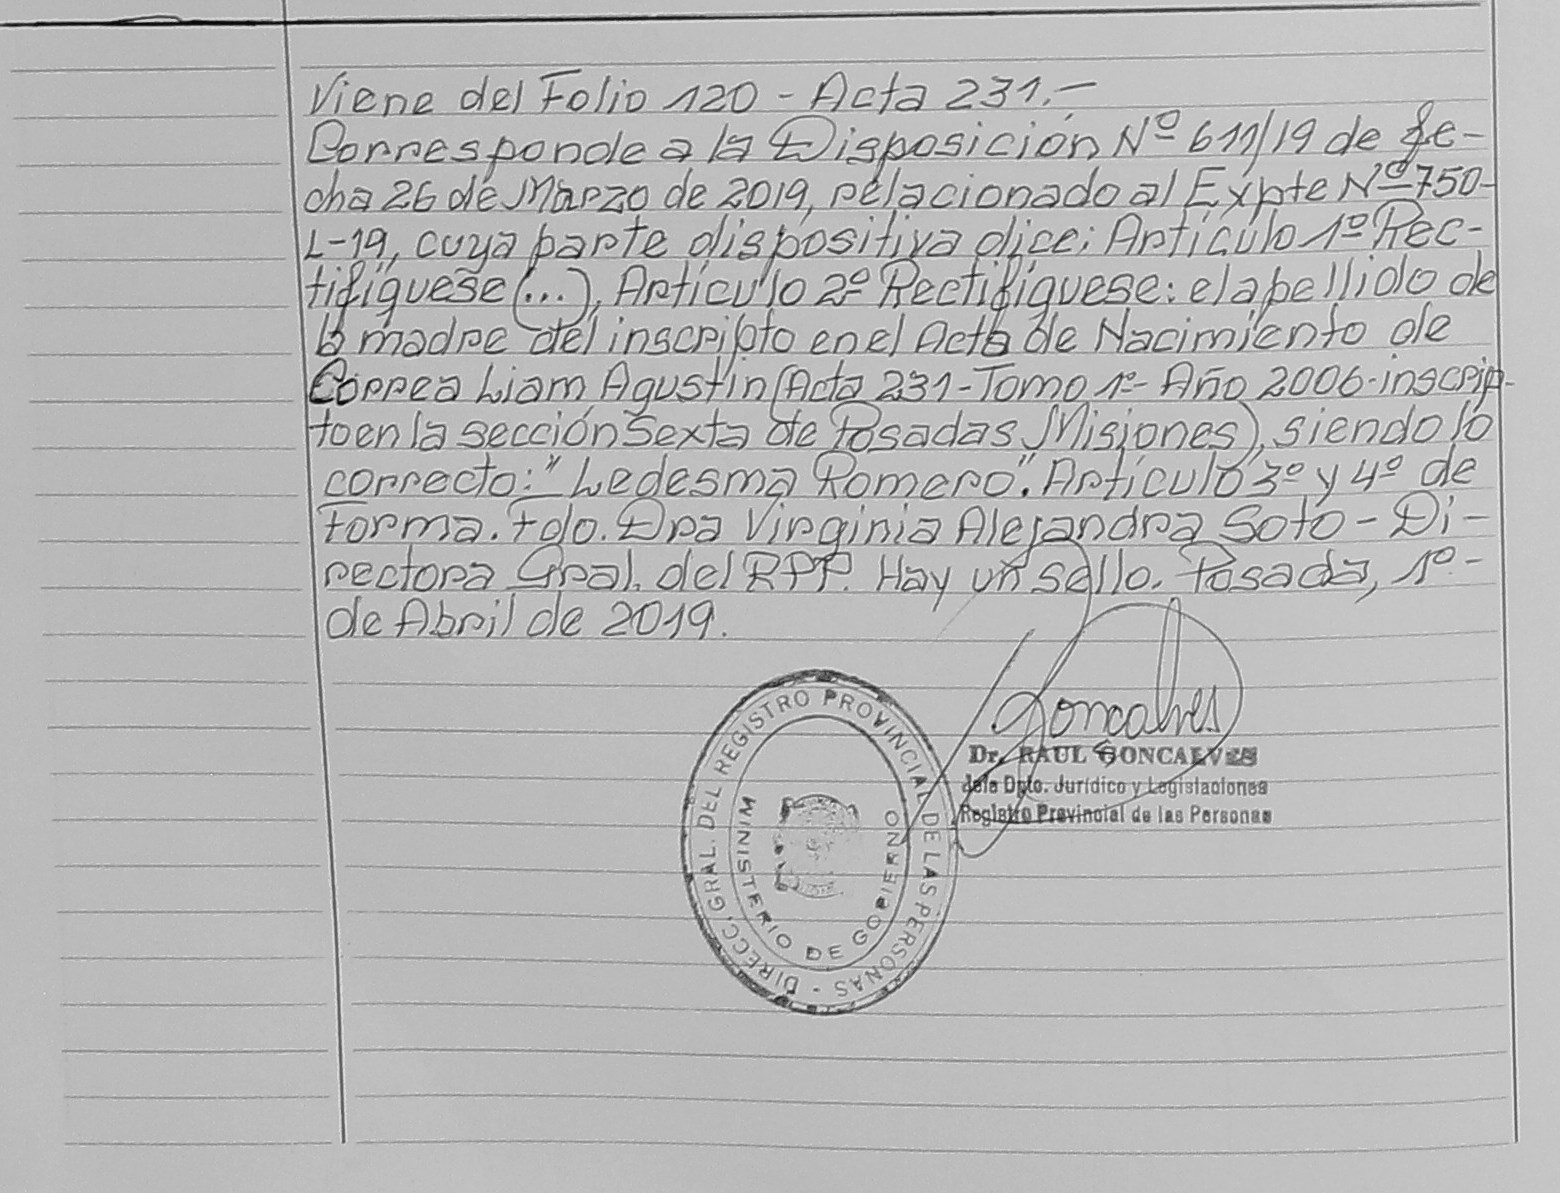 Viene del Folio 120 - Acta 231.-
Corresponde a la Disposición Nº 611/19 de fe-
cha 26 de Marzo de 2019, relacionado al Expte Nº 750-
L-19, cuya parte dispositiva dice: Artículo 1º Rec-
tifíquese (...), Artículo 2º Rectifíquese: el apellido de
la madre del inscripto en el Acta de Nacimiento de
Correa Liam Agustín (Acta 231 - Tomo 1º - Año 2006 - inscrip-
to en la sección Sexta de Posadas Misiones), siendo lo
correcto: "Ledesma Romero". Artículo 3º y 4º de
Forma. Fdo. Dra Virginia Alejandra Soto - Di-
rectora Gral. del RPP. Hay un sello. Posada, 1º -
de Abril de 2019.
Goncalves
Dr. RAUL GONCALVES
Jefe Dpto. Jurídico y Legislaciones
Registro Provincial de las Personas
DIRECC. GRAL. DEL REGISTRO PROVINCIAL DE LAS PERSONAS -
MINISTERIO DE GOBIERNO